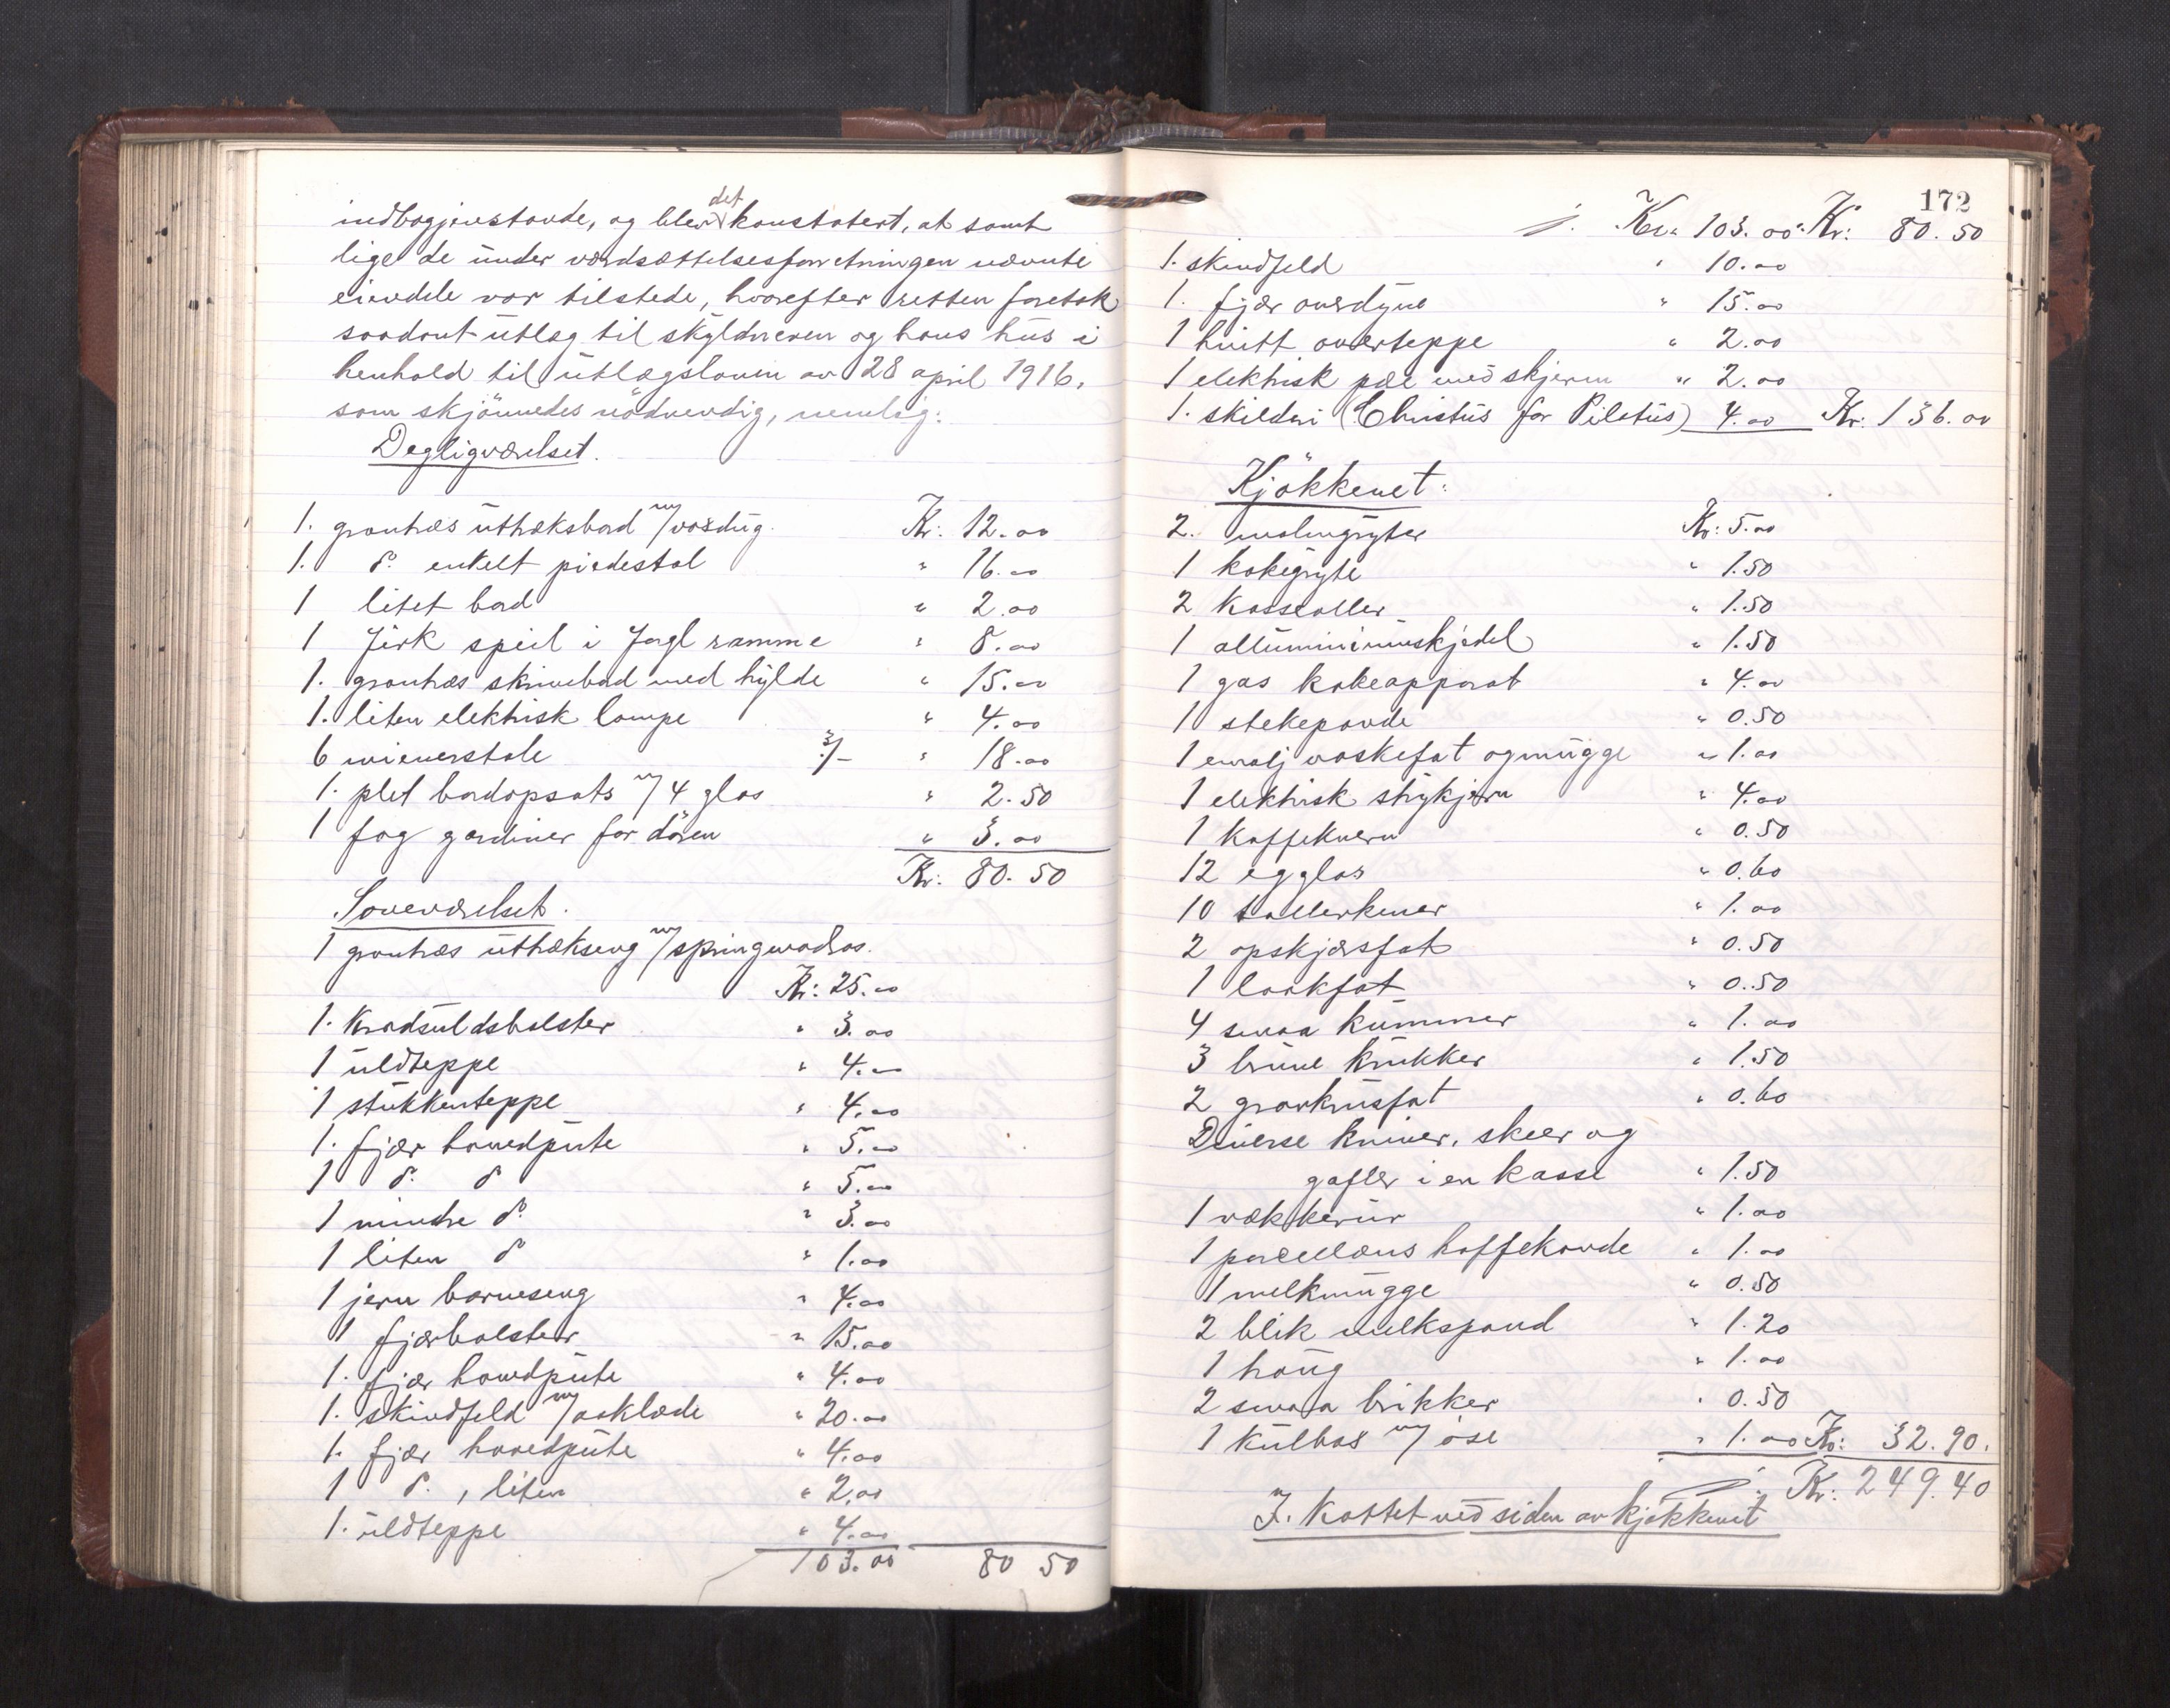 indbogjenstande, og blev det konstatert, at samt
lige de under værdsættelsesforretningen nævnte
eiendele var tilstede, hvorefter retten foretok
saadant utlæg til skyldneren og hans hus i
henhold til utlægsloven av 28 april 1916,
som skjönnedes nödvendig, nemlig:
Dagligværelset.
1. grantræs uttræksbord m/ voxdug. Kr: 12.00
1. do enkelt piedestal " 16.00
1 litet bord " 2.00
1 firk speil i forgl ramme " 8.00
1. grantræs skrivebord med hylde " 15.00
1. liten elektrisk lampe " 4.00
6 wienerstole 3/- " 18.00
1. plet bordopsats m/ 4 glas " 2.50
1 fag gardiner for dören " 3.00
Kr: 80.50
Soveværelset.
1 grantræs uttrækseng m/ springmadras.
Kr: 25.00
1. Kradsuldsbolster " 3.00
1 uldteppe " 4.00
1 stukkenteppe " 4.00
1. fjær hovedpute " 5.00
1 do do " 5.00
1 mindre do " 3.00
1 liten do " 1.00
1 jern barneseng " 4.00
1 fjærbolster " 15.00
1. fjær hovedpute " 4.00
1. skindfeld m/ aaklæde " 20.00
1. fjær hovedpute " 4.00
1 do, liten " 2.00
1. uldteppe " 4.00
103.00 80 50
172
Kr. 103.00 Kr: 80.50
1. skindfeld " 10.00
1. fjær overdyne " 15.00
1 hvitt overteppe " 2.00
1 elektrisk pære med skjerm " 2.00
1. skilderi (Christus for Pilatus) 4.00 Kr: 136.00
Kjökkenet:
2. malmgryter Kr: 5.00
1 kokegryte " 1.50
2 Kasseroller " 1.50
1 alluminiumskjedel " 1.50
1 gas kokeapparat " 4.00
1 stekepande " 0.50
1 emalj vaskefat og mugge " 1.00
1 elektrisk strykjern " 4.00
1 Kaffekvern " 0.50
12 egglas " 0.60
10 tallerkener " 1.00
2 opskjærsfat " 0.50
1 lookfat " 0.50
4 smaa kummer " 1.00
3 brune krukker " 1.50
2 graakrusfat " 0.60
Diverse kniver, skeer og
gafler i en kasse " 1.50
1 vækkerur " 1.00
1 porcellæns kaffekande " 1.00
1 melkmugge " 0.50
2 blik melkspand " 1.20
1 haug " 1.00
2 smaa brikker " 0.50
1 Kulbas m/ öse " 1.00 Kr: 32.90.
Kr: 249.40
I. Kottet ved siden av kjökkenet